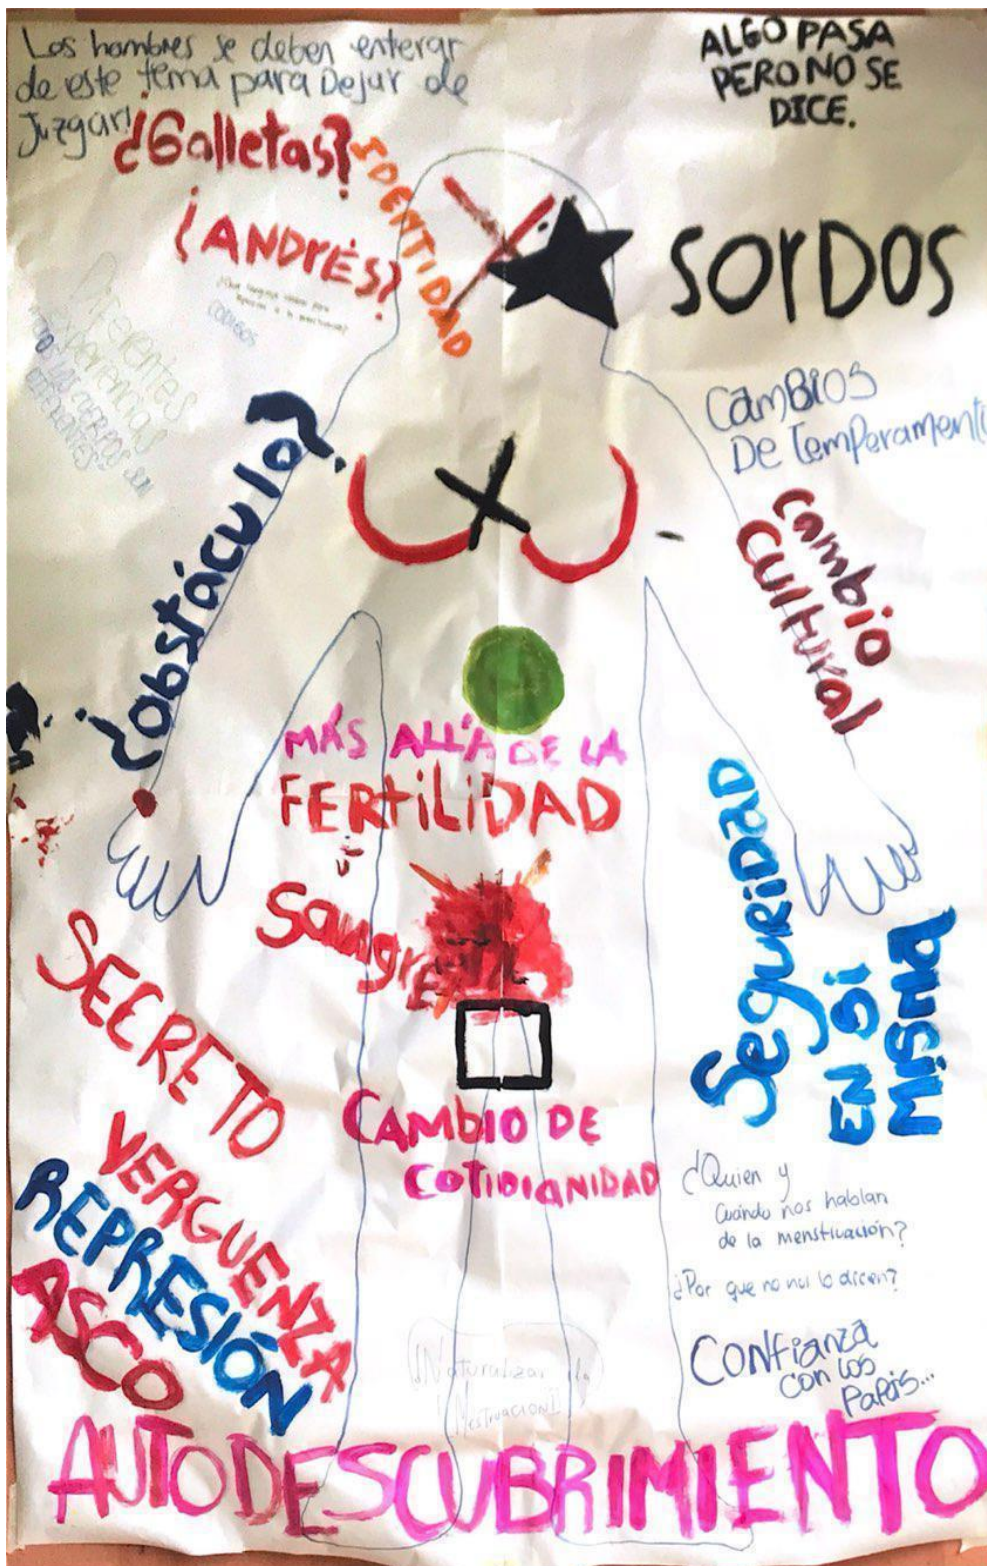 Los hombres se deben enterar
de este tema para Dejar de
Juzgar!
ALGO PASA
PERO NO SE
DICE.
¿Galletas?
IDENTIDAD
¿ANDRÉS?
SORDOS
CODIGOS
Diferentes
experiencias
TODOS LOS CUERPOS SON
DIFERENTES
¿obstáculo?
CAMBIOS
De Temperamento
Cambio
CULTURAL
MÁS ALLÁ DE LA
FERTILIDAD
Sangre
Seguridad
EN SÍ
MISMA
SECRETO
VERGUENZA
REPRESIÓN
ASCO
CAMBIO DE
COTIDIANIDAD
¿Quien y
Cuándo nos hablan
de la menstruación?
¿Por que no nos lo dicen?
Confianza
con los
Papás...
Naturalizar la
AUTODESCUBRIMIENTO